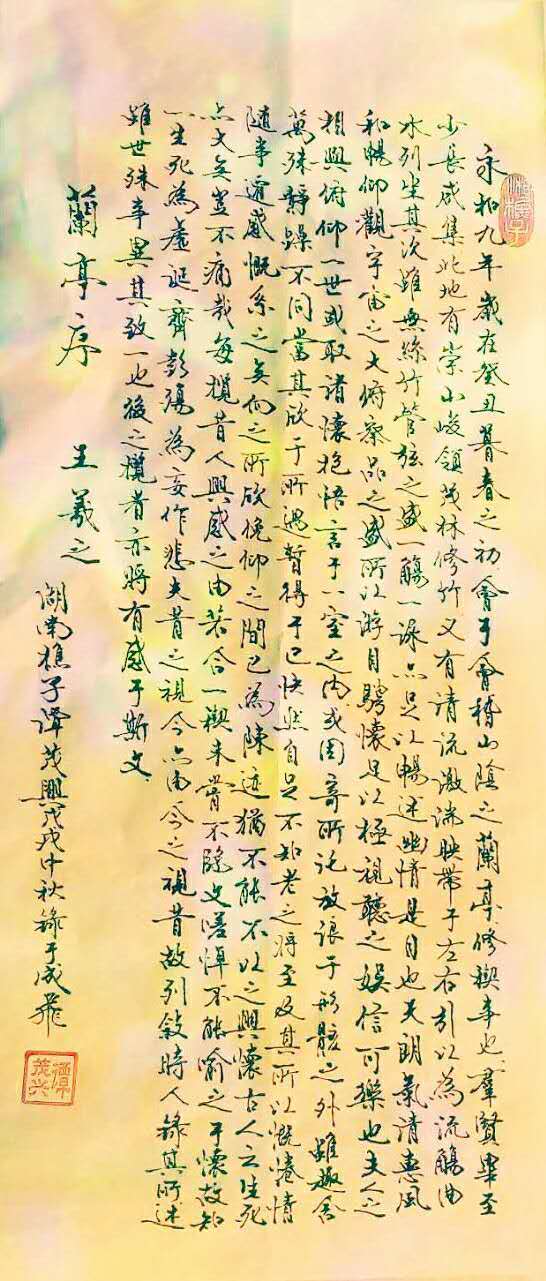 永和九年歲在癸丑暮春之初會于會稽山陰之蘭亭修稧事也羣賢畢至
少長咸集此地有崇山峻領茂林修竹又有清流激湍映帶于左右引以為流觴曲
水列坐其次雖無絲竹管弦之盛一觴一詠亦足以暢述幽情是日也天朗氣清惠風
和暢仰觀宇宙之大俯察品之盛所以游目騁懷足以極視聽之娛信可樂也夫人之
相與俯仰一世或取諸懷抱悟言于一室之內或因寄所託放浪于形骸之外雖趣舍
萬殊靜躁不同當其欣于所遇暫得于己快然自足不知老之將至及其所以慨惓情
隨事遷感慨系之矣向之所欣俛仰之間已為陳迹猶不能不以之興懷古人云生死
亦大矣豈不痛哉每攬昔人興感之由若合一稧未嘗不臨文嗟悼不能喻之于懷故知
一生死為虛誕齊彭殤為妄作悲夫昔之視今亦由今之視昔故列敘時人錄其所述
雖世殊事異其致一也後之攬者亦將有感于斯文
蘭亭序 王羲之
湖南樵子譚茂興戊戌中秋錄于成飛